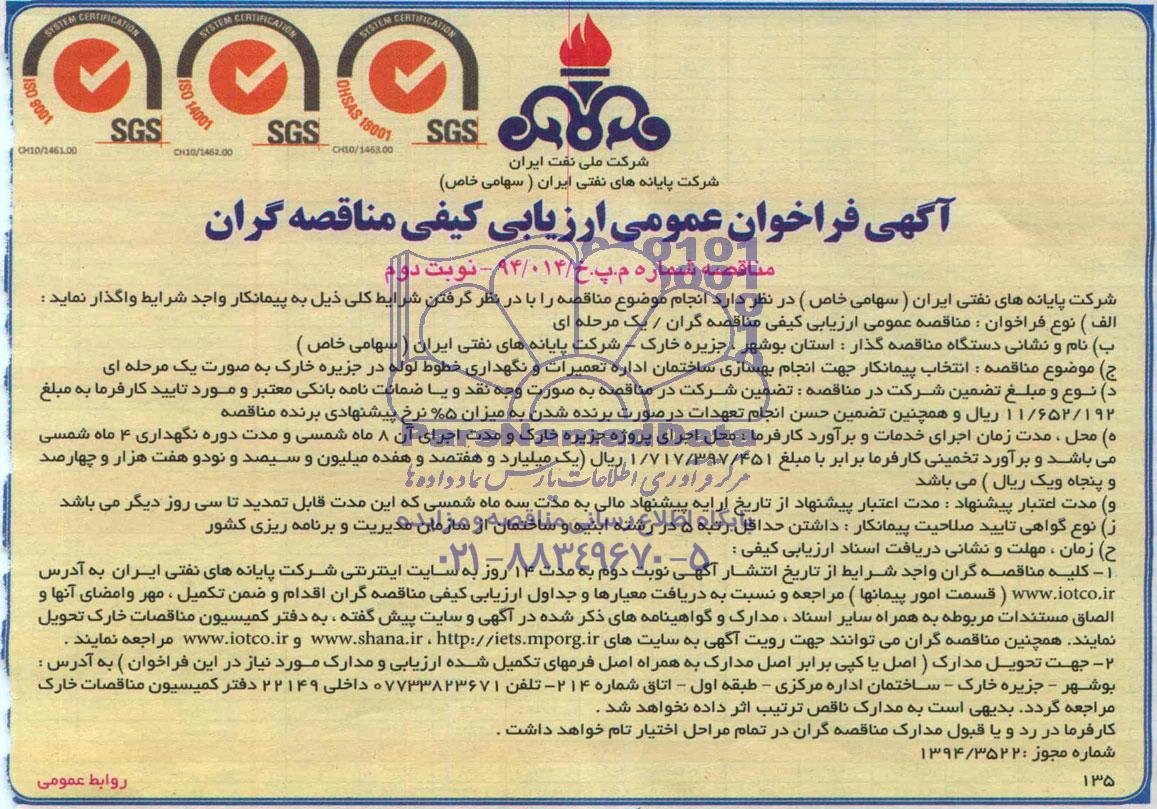 SYSTEM CERTIFICATION
ISO 9001
SGS
CH10/1461.00
SYSTEM CERTIFICATION
ISO 14001
SGS
CH10/1462.00
SYSTEM CERTIFICATION
OHSAS 18001
SGS
CH10/1463.00
شرکت ملی نفت ایران
شرکت پایانه های نفتی ایران ( سهامی خاص)
آگهی فراخوان عمومی ارزیابی کیفی مناقصه گران
مناقصه شماره م.پ.خ/۹۴/۰۱۴ - نوبت دوم
شرکت پایانه های نفتی ایران ( سهامی خاص ) در نظر دارد انجام موضوع مناقصه را با در نظر گرفتن شرایط کلی ذیل به پیمانکار واجد شرایط واگذار نماید :
الف ) نوع فراخوان : مناقصه عمومی ارزیابی کیفی مناقصه گران / یک مرحله ای
ب) نام و نشانی دستگاه مناقصه گذار : استان بوشهر ، جزیره خارک - شرکت پایانه های نفتی ایران ( سهامی خاص )
ج) موضوع مناقصه : انتخاب پیمانکار جهت انجام بهسازی ساختمان اداره تعمیرات و نگهداری خطوط لوله در جزیره خارک به صورت یک مرحله ای
د) نوع و مبلغ تضمین شرکت در مناقصه : تضمین شرکت در مناقصه به صورت وجه نقد و یا ضمانت نامه بانکی معتبر و مورد تایید کارفرما به مبلغ
۱۱/۶۵۲/۱۹۲ ریال و همچنین تضمین حسن انجام تعهدات درصورت برنده شدن به میزان ۵% نرخ پیشنهادی برنده مناقصه
ه) محل ، مدت زمان اجرای خدمات و برآورد کارفرما : محل اجرای پروژه جزیره خارک و مدت اجرای آن ۸ ماه شمسی و مدت دوره نگهداری ۴ ماه شمسی
می باشد و برآورد تخمینی کارفرما برابر با مبلغ ۱/۷۱۷/۳۹۷/۴۵۱ ریال (یک میلیارد و هفتصد و هفده میلیون و سیصد و نودو هفت هزار و چهارصد
و پنجاه ویک ریال ) می باشد
و) مدت اعتبار پیشنهاد : مدت اعتبار پیشنهاد از تاریخ ارایه پیشنهاد مالی به مدت سه ماه شمسی که این مدت قابل تمدید تا سی روز دیگر می باشد
ز) نوع گواهی تایید صلاحیت پیمانکار : داشتن حداقل رتبه ۵ در رشته ابنیه و ساختمان از سازمان مدیریت و برنامه ریزی کشور
ح) زمان ، مهلت و نشانی دریافت اسناد ارزیابی کیفی :
۱- کلیه مناقصه گران واجد شرایط از تاریخ انتشار آگهی نوبت دوم به مدت ۱۴ روز به سایت اینترنتی شرکت پایانه های نفتی ایران به آدرس
www.iotco.ir ( قسمت امور پیمانها ) مراجعه و نسبت به دریافت معیارها و جداول ارزیابی کیفی مناقصه گران اقدام و ضمن تکمیل ، مهر وامضای آنها و
الصاق مستندات مربوطه به همراه سایر اسناد ، مدارک و گواهینامه های ذکر شده در آگهی و سایت پیش گفته ، به دفتر کمیسیون مناقصات خارک تحویل
نمایند. همچنین مناقصه گران می توانند جهت رویت آگهی به سایت های www.shana.ir ، http://iets.mporg.ir و www.iotco.ir مراجعه نمایند .
۲- جهت تحویل مدارک ( اصل یا کپی برابر اصل مدارک به همراه اصل فرمهای تکمیل شده ارزیابی و مدارک مورد نیاز در این فراخوان ) به آدرس :
بوشهر - جزیره خارک - ساختمان اداره مرکزی - طبقه اول - اتاق شماره ۲۱۴- تلفن ۰۷۷۳۳۸۲۳۶۷۱ داخلی ۲۲۱۴۹ دفتر کمیسیون مناقصات خارک
مراجعه گردد. بدیهی است به مدارک ناقص ترتیب اثر داده نخواهد شد .
کارفرما در رد و یا قبول مدارک مناقصه گران در تمام مراحل اختیار تام خواهد داشت .
شماره مجوز :۱۳۹۴/۳۵۲۲
۱۳۵
روابط عمومی
ParsNamadData
مرکز فرآوری اطلاعات پارس نماد داده ها
پایگاه اطلاع رسانی مناقصه و مزایده
۰۲۱-۸۸۳۴۹۶۷۰-۵